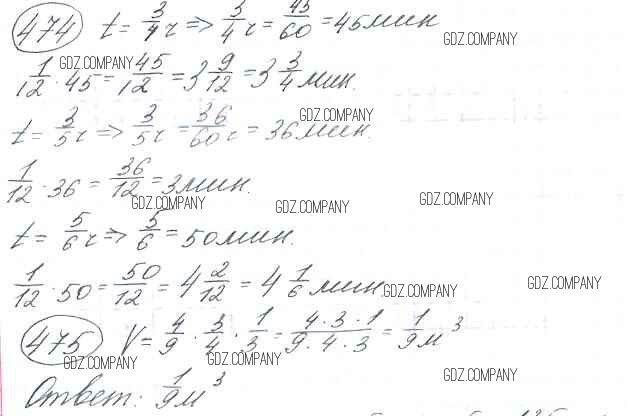 474 t = 3/4 ч => 3/4 ч = 45/60 = 45 мин
GDZ.COMPANY
GDZ.COMPANY
1/12 · 45 = 45/12 = 3 9/12 = 3 3/4 мин.
GDZ.COMPANY
t = 3/5 ч => 3/5 ч = 36/60 ч = 36 мин.
1/12 · 36 = 36/12 = 3 мин.
GDZ.COMPANY GDZ.COMPANY GDZ.COMPANY
t = 5/6 ч => 5/6 = 50 мин.
1/12 · 50 = 50/12 = 4 2/12 = 4 1/6 мин.
GDZ.COMPANY GDZ.COMPANY
475 V = 4/9 · 3/4 · 1/3 = 4 · 3 · 1/9 · 4 · 3 = 1/9 м³
GDZ.COMPANY GDZ.COMPANY GDZ.COMPANY
Ответ: 1/9 м³